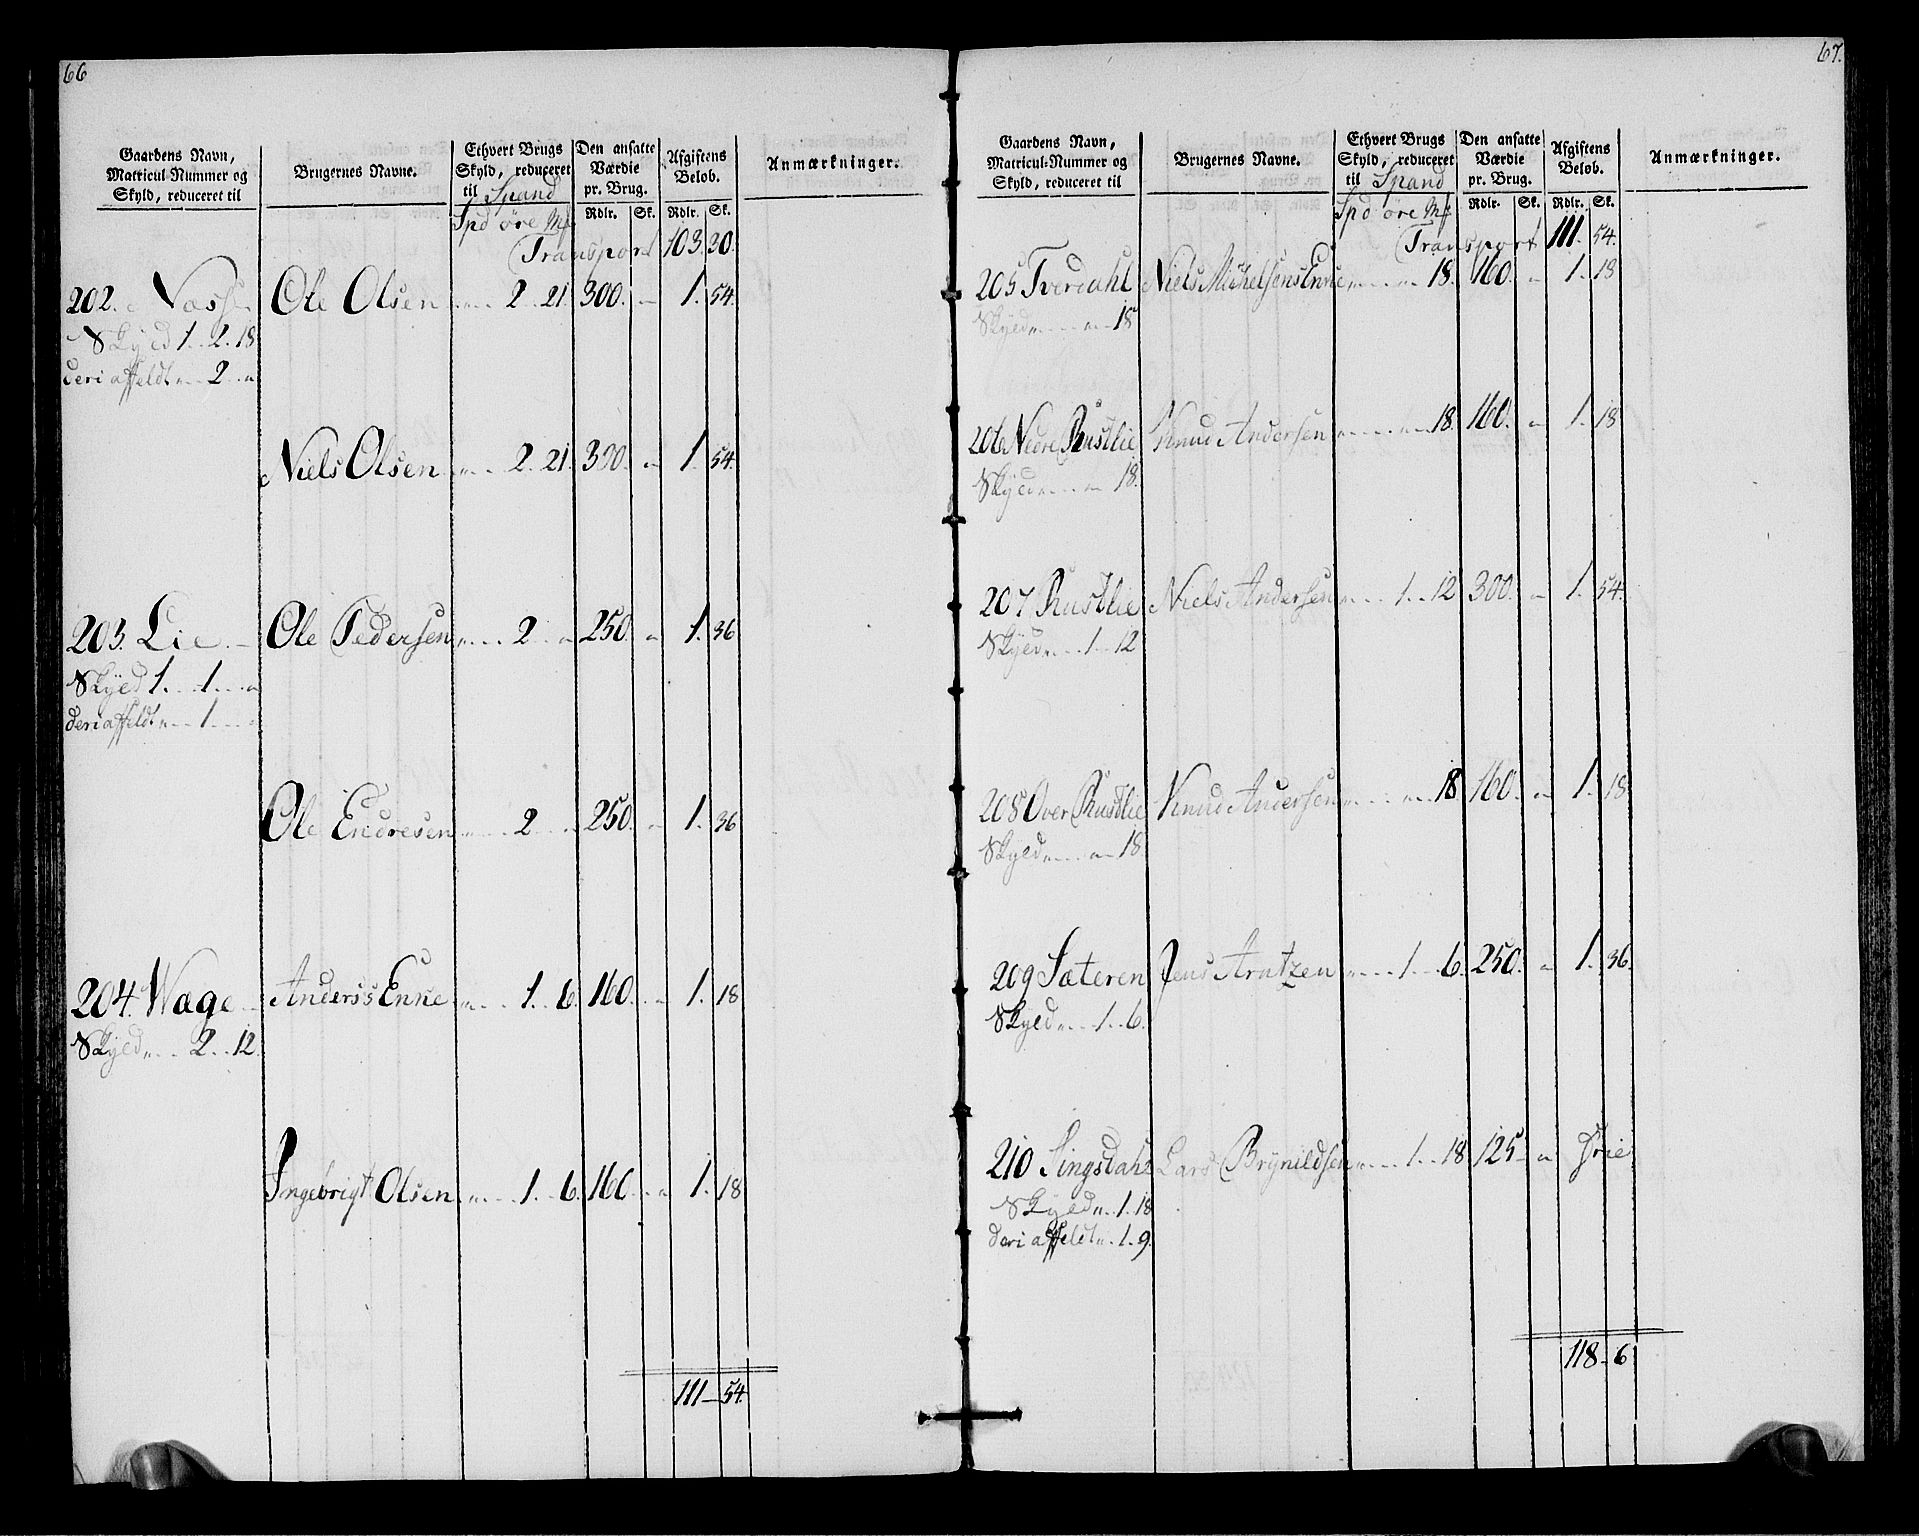 66
Gaardens Navn, Matricul-Nummer og Skyld, reduceret til
Brugernes Navne.
Ethvert Brugs Skyld, reduceret til Spand
Spd öre Mk
Den ansatte Værdie pr. Brug.
Rdlr. Sk.
Afgiftens Beløb.
Rdlr. Sk.
Anmærkninger.
Transport 103. 20.
202. Næss Ole Olsen 2. 21. 300. 1. 54.
Skyld 1. 2. 18
deri affeldt 2
Niels Olsen 2. 21. 300. 1. 54.
203. Lie Ole Pedersen 2 250. 1. 36
Skyld 1. 1
deri affeldt 1
Ole Endresen 2 250. 1. 36
204. Wæge Anders's Enke 1. 6. 160. 1. 18
Skyld 2. 12.
Ingebrigt Olsen 1. 6. 160. 1. 18
111 54.
67.
Gaardens Navn, Matricul-Nummer og Skyld, reduceret til
Brugernes Navne.
Ethvert Brugs Skyld, reduceret til Spand
Spd öre Mk
Den ansatte Værdie pr. Brug.
Rdlr. Sk.
Afgiftens Beløb.
Rdlr. Sk.
Anmærkninger.
Transport 111. 54.
205 Tverdahl Niels Michelsens Enke 18. 160. 1. 18
Skyld 18
206 Nedre Rustlie Knud Andersen 18. 160. 1. 18
Skyld 18.
207 Rustlie Niels Andersen 1. 12 300. 1. 54.
Skyld 1. 12
208 Over Rustlie Knud Andersen 18 160. 1. 18
Skyld 18.
209 Sæteren Jens Arntzen 1. 6. 250. 1. 36.
Skyld 1. 6.
210 Singsdahl Lars Brynildsen 1. 18 125 Frie
Skyld 1. 18
deri affeldt 1. 9.
118 6